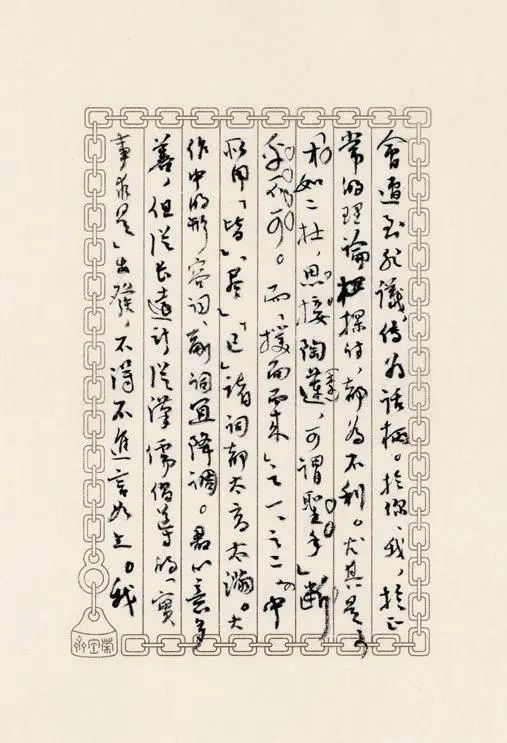 會遭到非議,傳為話柄。於你、我,於正
常的理論探討,都為不利。尤其是
才如二杜,思接陶,可謂聖手」斷
乎不可。而「撲面而來」之一、之二,中
所用「皆」、「」、「已」諸詞都太高太滿。大
作中的形容詞、副詞宜降調。君心意
善,但從長遠計,從漢儒倡導的「實
事求是」出發,不得不進言如上。我